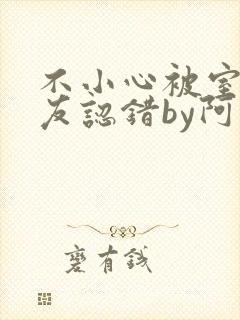 不小心被室
友認錯by阿
蹇有錢